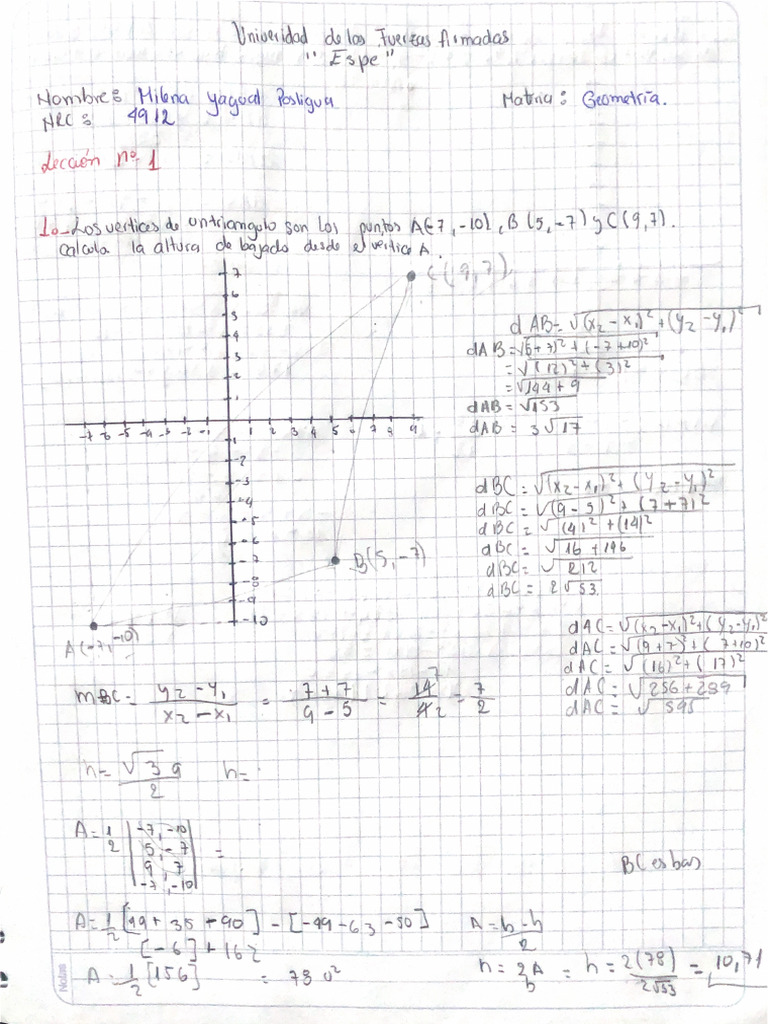 Univeridad de las Fuerzas Armadas
"Espe"
Nombre: Milena Yagual Posligua
Materia: Geometría.
NRC: 4912
Lección nº 1
1.- Los vertices de un triangulo son los puntos A(-7, -10), B(5, -7) y C(9,7).
Calcula la altura de bajada desde el vertice A.
C(9,7)
7
6
5
4
3
2
1
-7 -6 -5 -4 -3 -2 -1 1 2 3 4 5 6 7 8 9
-1
-2
-3
-4
-5
-6
-7
-8
-9
-10
B(5, -7)
A(-7, -10)
dAB = √(x₂ - x₁)² + (y₂ - y₁)²
dAB = √(5+7)² + (-7+10)²
= √(12)² + (3)²
= √144 + 9
dAB = √153
dAB = 3√17
dBC = √(x₂ - x₁)² + (y₂ - y₁)²
dBC = √(9-5)² + (7+7)²
dBC = √(4)² + (14)²
dBC = √16 + 196
dBC = √212
dBC = 2√53
dAC = √(x₂ - x₁)² + (y₂ - y₁)²
dAC = √(9+7)² + (7+10)²
dAC = √(16)² + (17)²
dAC = √256 + 289
dAC = √545
mBC = y₂ - y₁ / x₂ - x₁ = 7+7 / 9-5 = 14 7 / 4 2 = 7/2
h = √3 a / 2 h =
A = 1/2 | -7, -10
5, -7
9, 7
-7, -10 | =
BC es bas
A = 1/2 [49 + 35 + -90] - [-49 - 63 - 50]
A = b - h / 2
[-6] + 162
A = 1/2 [156] = 78 u²
h = 2A / b = h = 2(78) / 2√53 = 10,71
Nolas